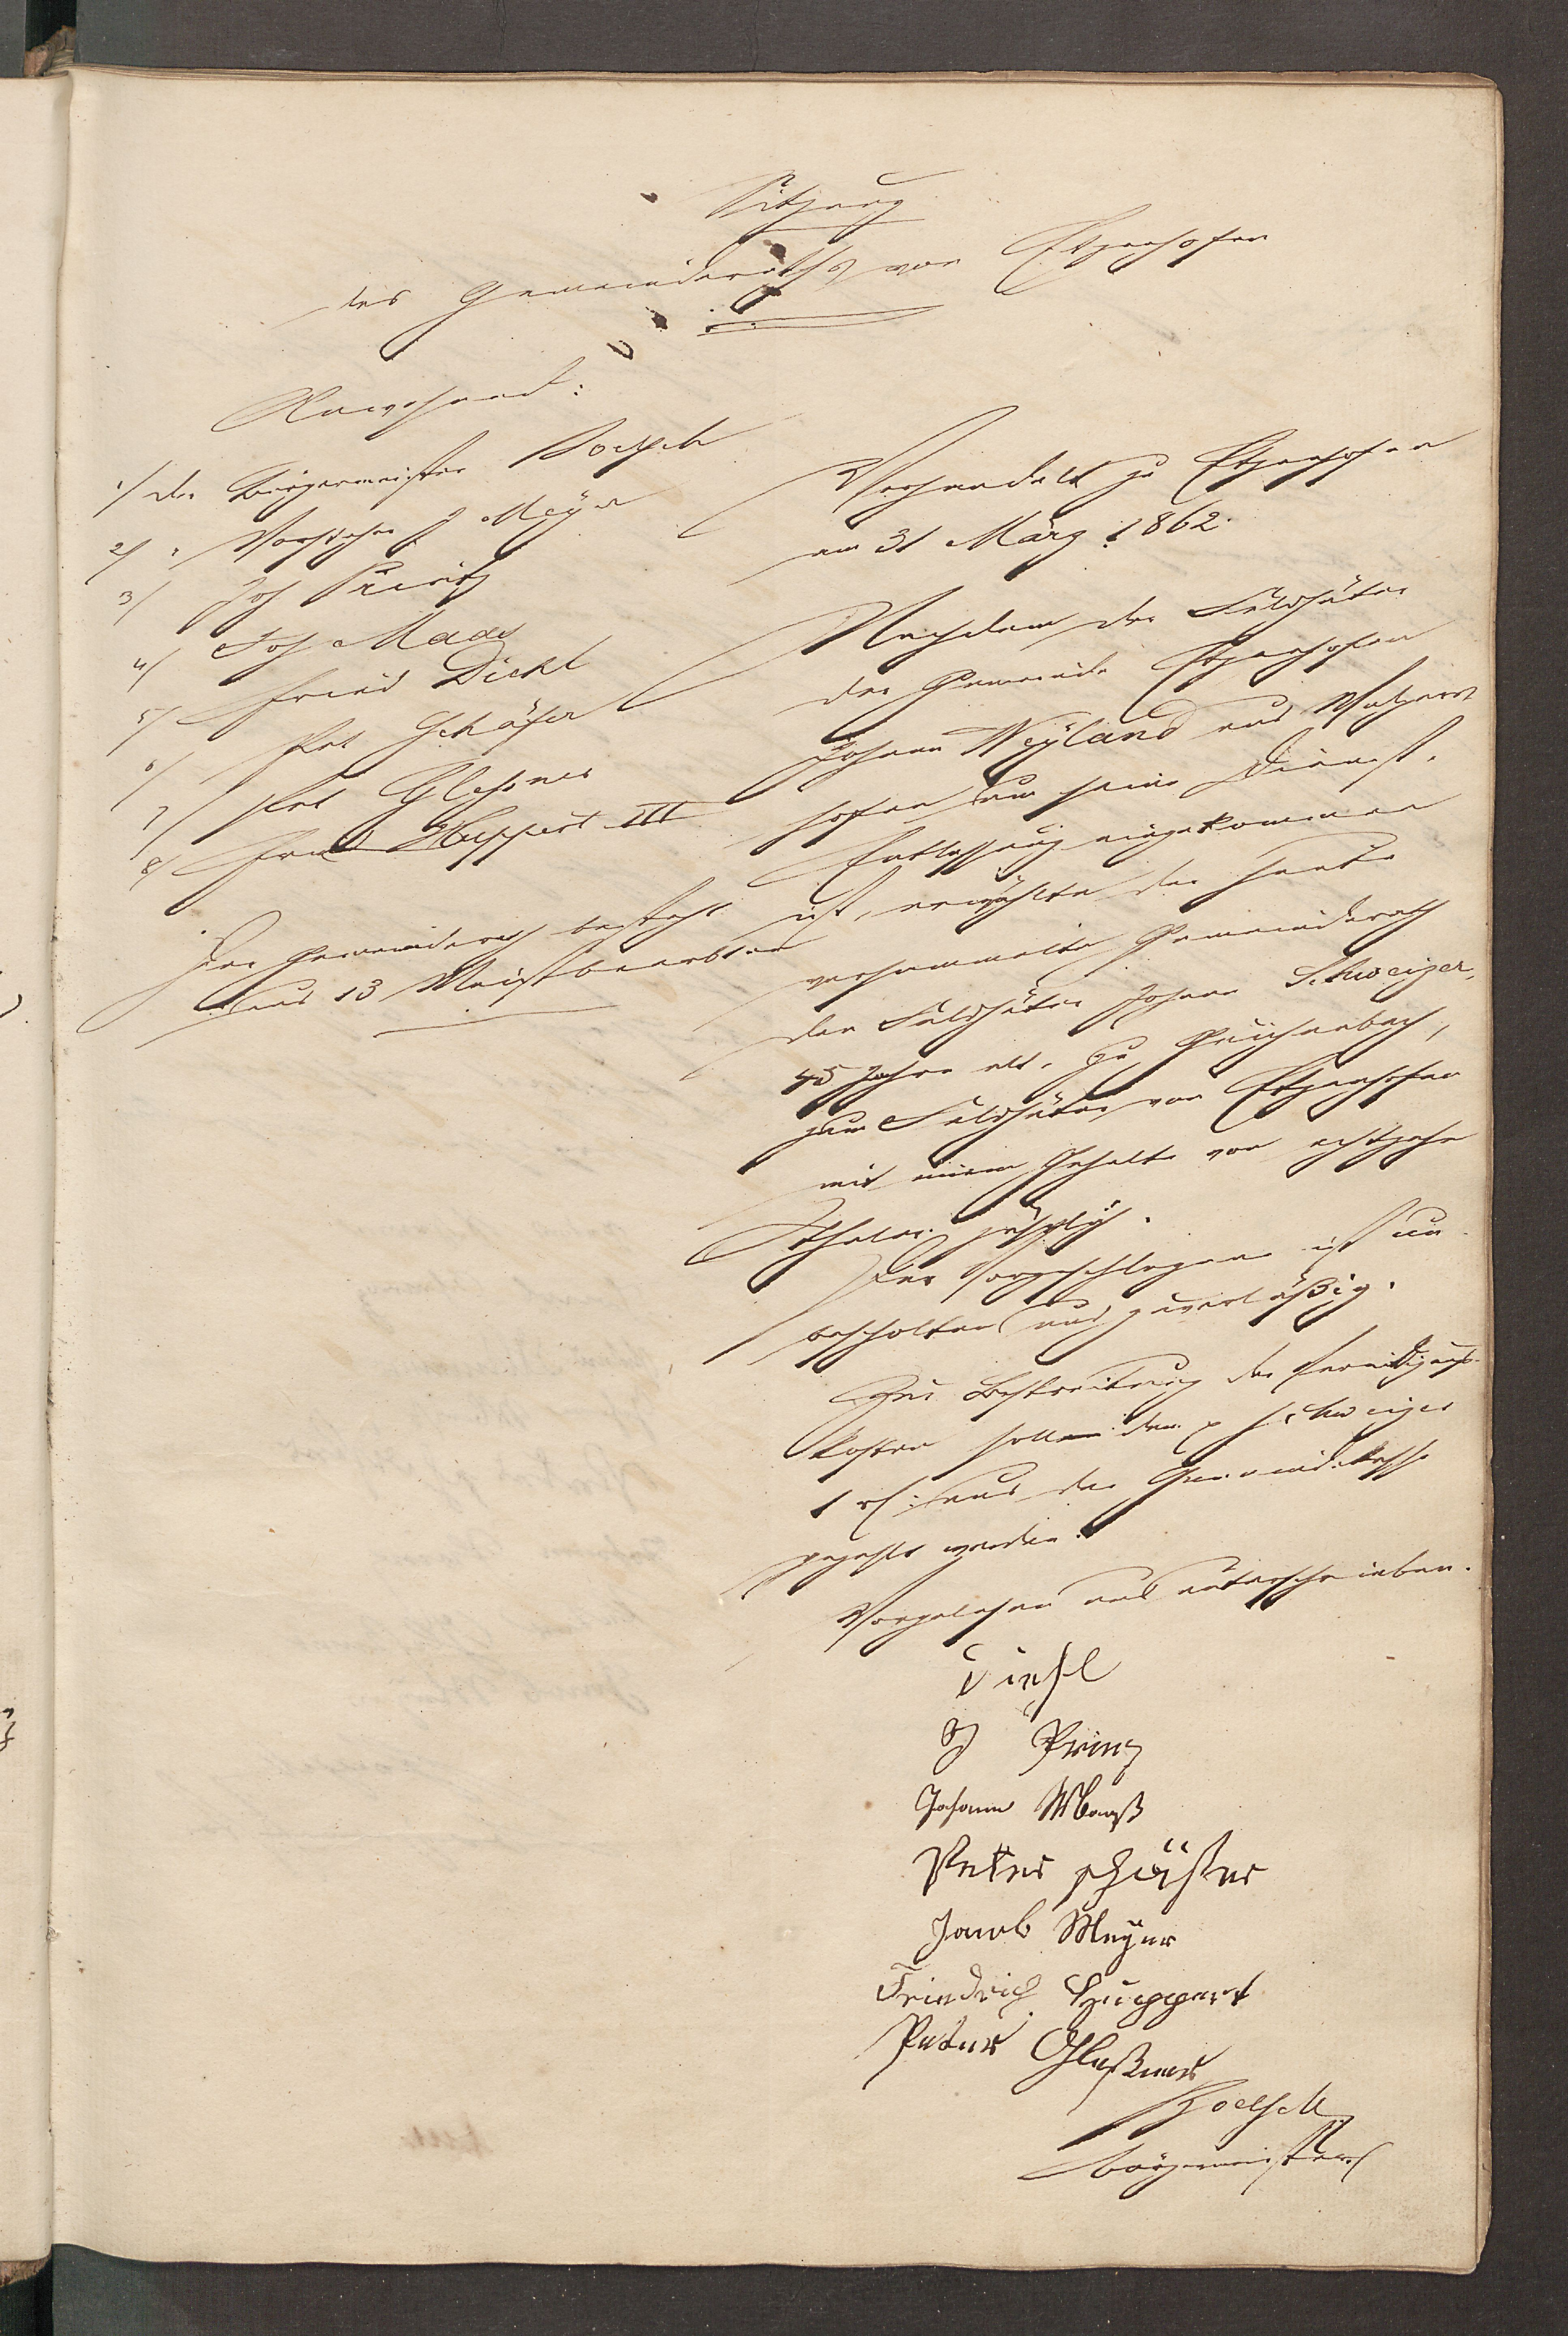 Sitzung
des Gemeinderaths von Etzenhofen
Anwesend:
1/ der Bürgermeister Boelsch
2/ " Vorsteher J Meyer
3/ Joh Prinz
4/ Joh Maas
5/ Fried Diehl
6/ Pet Schäfer
7/ Pet Glessner
8/ Fried Huppert III
Der Gemeinderath besteht
aus 13 Meistbeerbten
Verhandelt zu Etzenhofen
am 31 März 1862.
Nachdem der Feldhüter
der Gemeinde Etzenhofen
Johann Weyland aus
hofen um seine Dienst-
Entlassung eingekommen
ist, erwählte der heute
versammelte Gemeinderath
den Feldhüter Johann Schweizer,
45 Jahre alt, zu Güchenbach,
zum Feldhüter von Etzenhofen
mit einem Gehalte von achtzehn
Thaler jährlich.
Der Vorgeschlagene ist un-
bescholten und zuverläßig.
Zur Bestreitung der Vereidigungs-
kosten sollen dem p Schweizer
1 rt aus der Gemeindekasse
gezahlt werden.
Vorgelesen und unterschrieben.
Diehl
J Prinz
Johann Maaß
Peter Schäffer
Jacob Meyer
Friedrich Huppert
Peter Gleßner
Boelsch
Bürgermeister